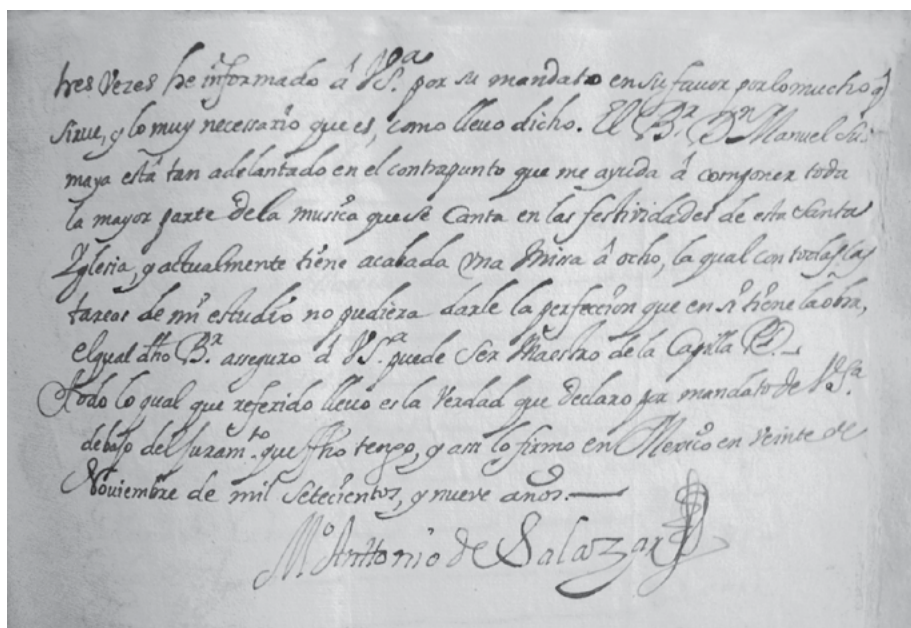 tres Vezes he informado â VSª. por su mandato en su favor por lo mucho q̃
sirue, y lo muy necessario que es, como lleuo dicho. El Bʳ. Dⁿ Manuel Su:
maya está tan adelantado en el contrapunto que me ayuda â componer toda
la mayor parte dela musica que se Canta en las festividades de esta Santa
Yglesia, y actualmente tiene acabada vna Missa â ocho, la qual con todas las
tareas de mi estudio no pudiera darle la perfeccion que en si tiene la obra,
el qual dho Bʳ. asseguro â VSª. puede ser Maestro de la Capilla Rˡ.
Todo lo qual que referido lleuo es la Verdad que declaro por mandato de VSª.
debajo del Juramᵗᵒ. que fho tengo, y assi lo firmo en Mexico en veinte de
Noviembre de mil setecientos, y nueve años.
Mº Anttonio de Salazar